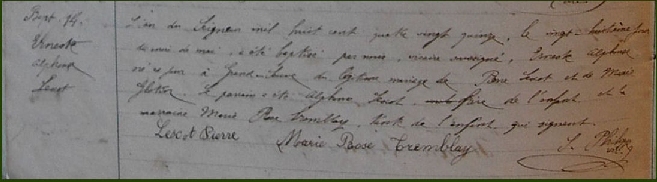 Bapt. 74.
Ernest
Alphonse
Lescot
L'an du Seigneur mil huit cent quatre vingt quinze, le vingt huitième jour
du mois de mai, a été baptisé par nous, vicaire soussigné, Ernest Alphonse
né ce jour à Grand du légitime mariage de Pierre Lescot et de Marie
Le parrain a été Alphonse Lescot, de l'enfant et la
marraine Marie Rose Tremblay, de l'enfant qui signent.
Lescot Pierre
Marie Rose Tremblay